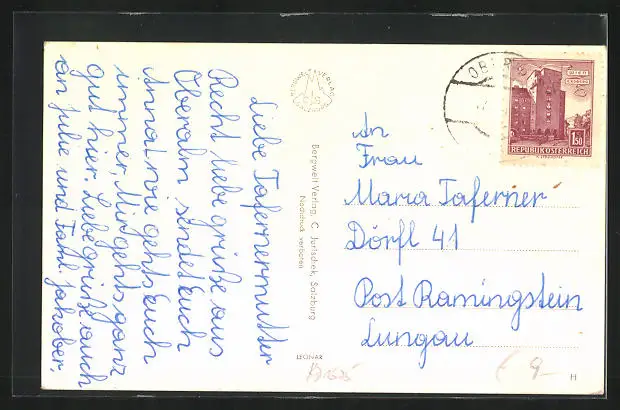 Liebe Tafernermutter
Recht liebe grüße aus
Oberalm sendet Euch
Anna. wie gehts Euch
immer, Mir gehts ganz
gut hier. Liebe grüße auch
an Julie und Faml. Jakober.
BERGWELT VERLAG
Bergwelt Verlag, C. Jurischek, Salzburg
Nachdruck verboten
LEONAR
OBER
1.50
REPUBLIK ÖSTERREICH
An
Frau
Maria Taferner
Dörfl 41
Post Ramingstein
Lungau
€ 9-
H